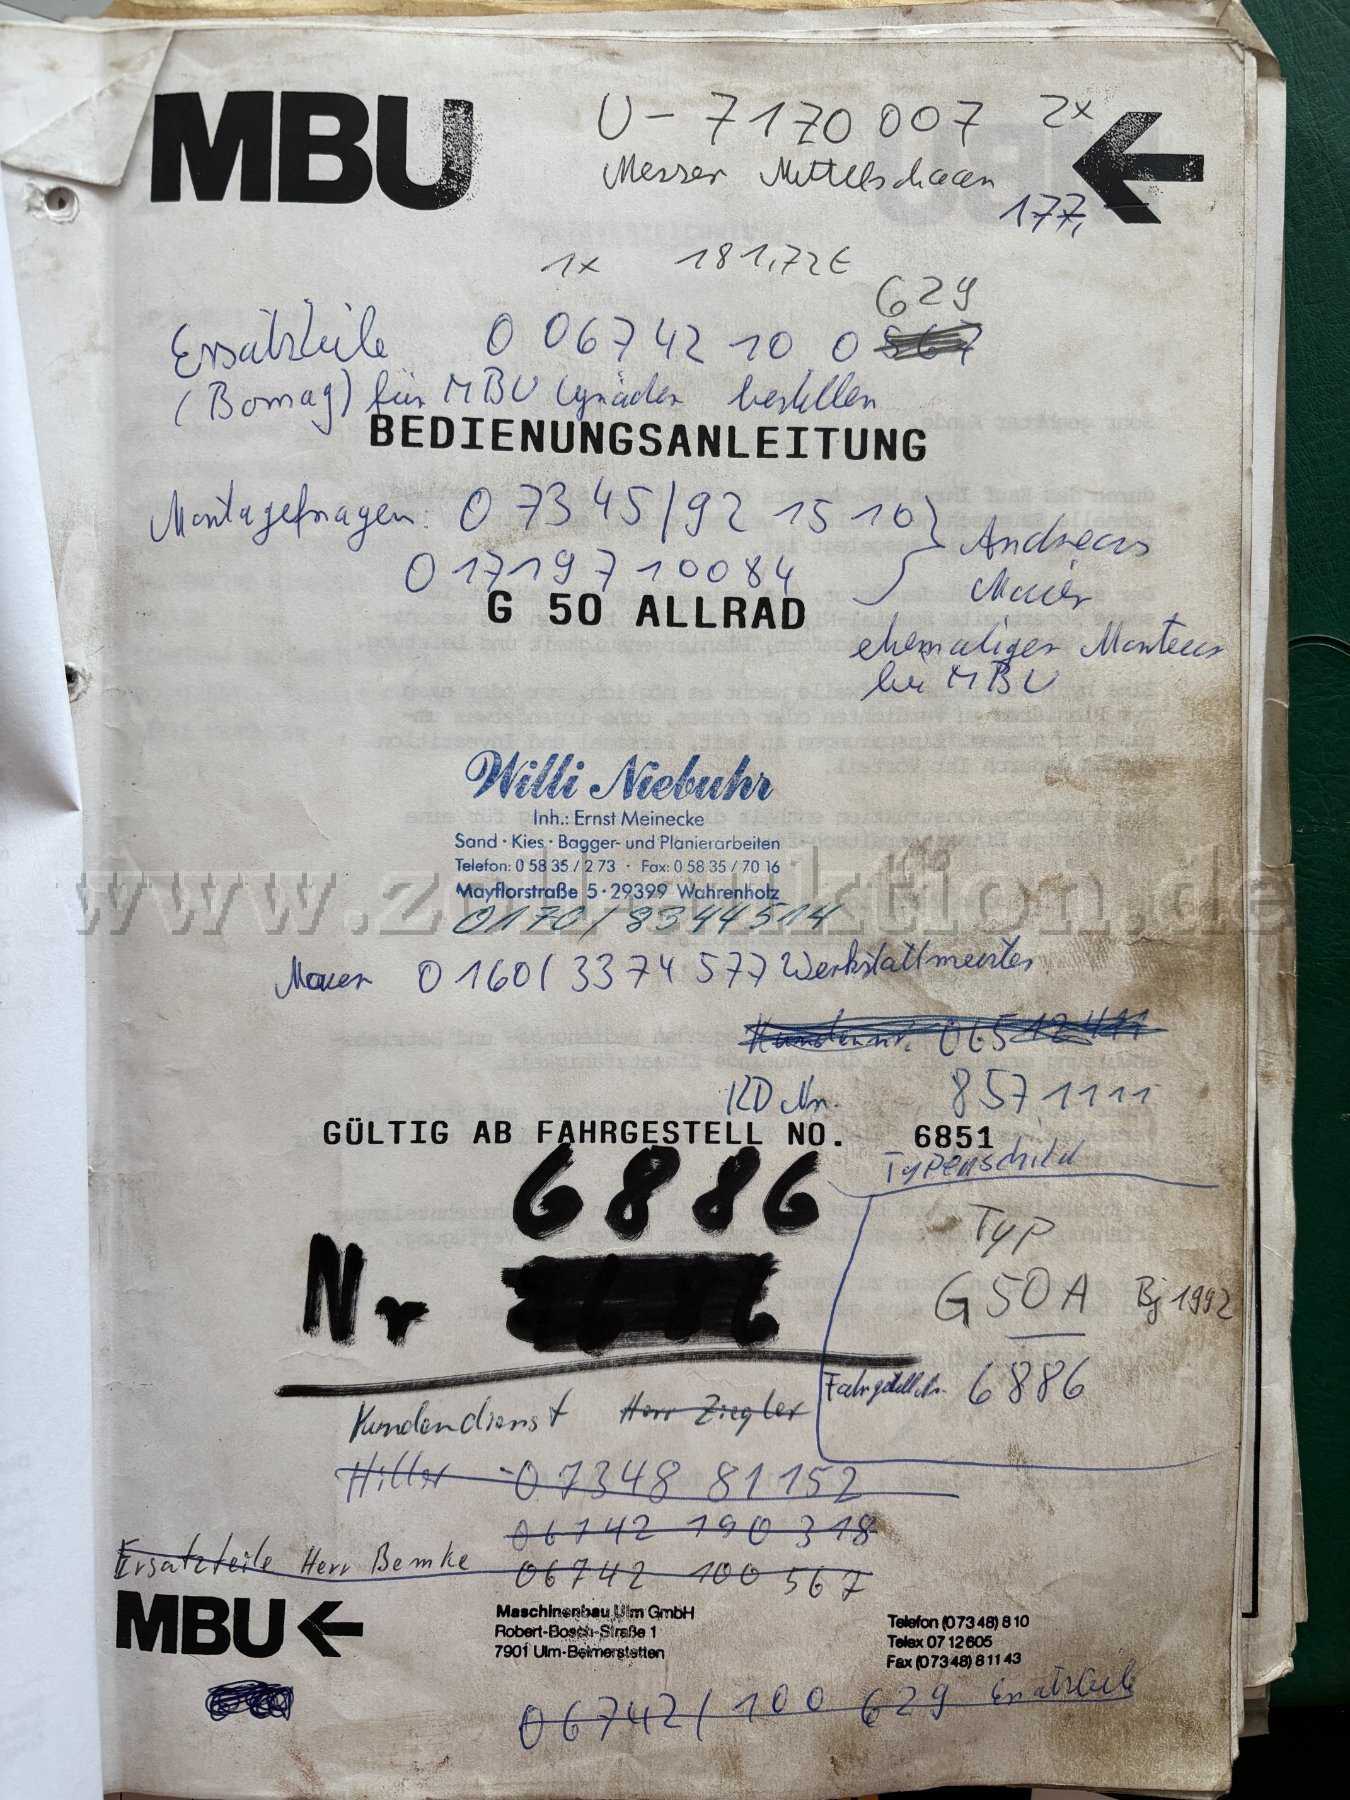 MBU
U - 7170 007 2x
Messer Mittelschaar
177,-
1x 181,72€
629
Ersatzteile 0 06742 10 0 567
(Bomag) für MBU Gräder bestellen
BEDIENUNGSANLEITUNG
Montagefragen: 0 7345/92 1510
01719710084
Andreas
Maier
ehemaliger Monteur
bei MBU
G 50 ALLRAD
Willi Niebuhr
Inh.: Ernst Meinecke
Sand · Kies · Bagger- und Planierarbeiten
Telefon: 0 58 35 / 2 73 · Fax: 0 58 35 / 70 16
Mayflorstraße 5 · 29399 Wahrenholz
www.zoll-auktion.de
0170/8344514
0160/3374577 Werkstattmeister
Kundennr. 065 12 411
KD Nr. 8571111
GÜLTIG AB FAHRGESTELL NO. 6851
Typenschild
6886
Nr
Typ
G50A Bj 1992
Fahrgestellnr. 6886
Kundendienst Herr Ziegler
Hiller 07348 81152
06742 190318
Ersatzteile Herr Bemke 06742 100 567
MBU
Maschinenbau Ulm GmbH
Robert-Bosch-Straße 1
7901 Ulm-Beimerstetten
Telefon (0 73 48) 8 10
Telex 07 12 605
Fax (0 73 48) 8 11 43
06742/100 629 Ersatzteile